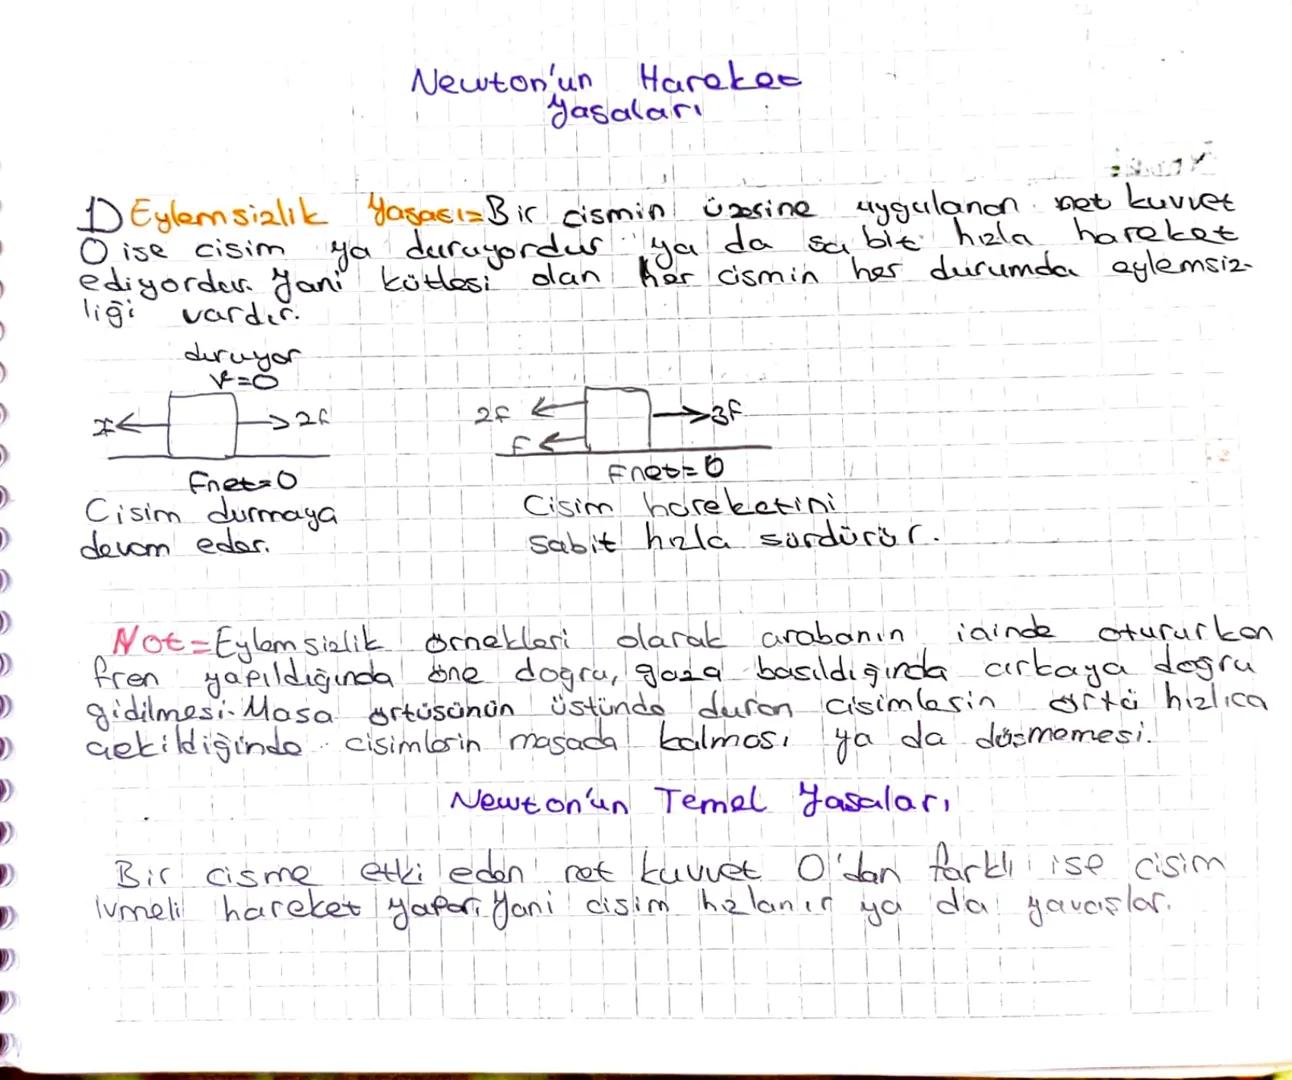 Newton'un Hareket
Yasaları
1) Eylemsizlik Yasası= Bir cismin üzerine uygulanan net kuvvet
0 ise cisim ya duruyordur ya da sabit hızla hareket
ediyordur. Yani kütlesi olan her cismin her durumda eylemsiz-
liği vardır.
duruyor
V=0
2F
Fnet=0
Cisim durmaya
devam eder.
2F
3F
F
Fnet=0
Cisim hareketini
sabit hızla sürdürür.
Not=Eylemsizlik örnekleri olarak arabanın içinde otururken
fren yapıldığında öne doğru, gaza basıldığında arkaya doğru
gidilmesi. Masa örtüsünün üstünde duran cisimlerin örtü hızlıca
çekildiğinde cisimlerin masada kalması ya da düşmemesi.
Newton'un Temel Yasaları
Bir cisme etki eden net kuvvet 0'dan farklı ise cisim
ivmeli hareket yapar, Yani cisim hızlanır ya da yavaşlar.